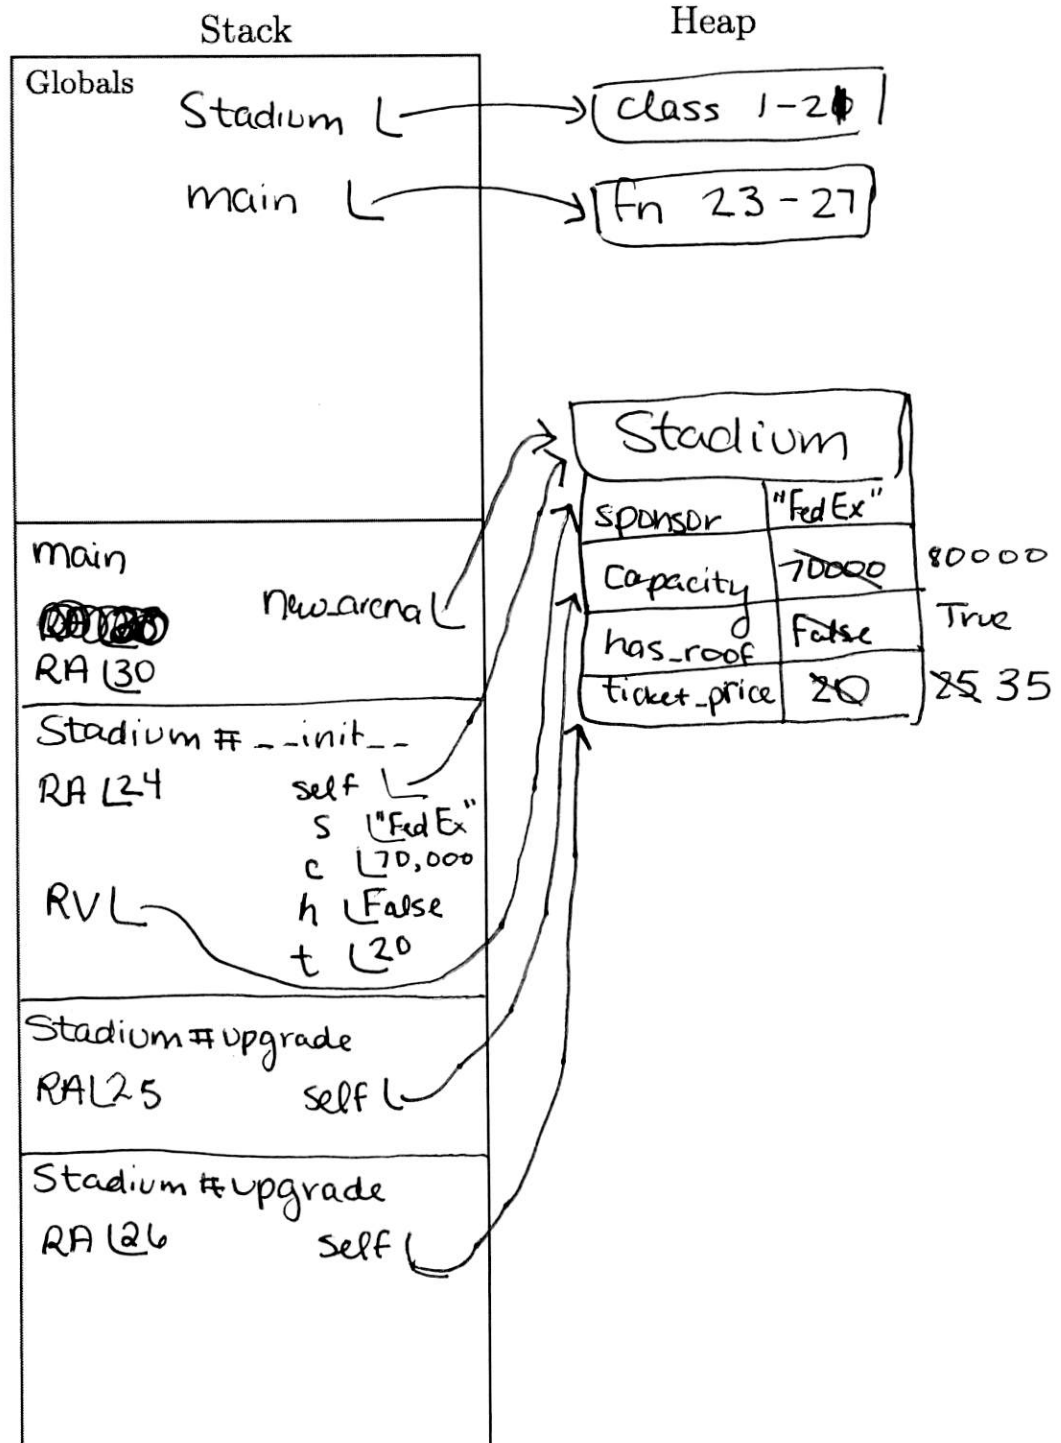 Stack
Heap
Globals
Stadium
Class 1-21
main
fn 23-27
Stadium
sponsor "FedEx"
capacity 70000 80000
has_roof False True
ticket_price 20 25 35
main
new_arena
RA 30
Stadium # __init__
RA 24
self
s "FedEx"
c 70,000
RV
h False
t 20
Stadium # upgrade
RA 25
self
Stadium # upgrade
RA 26
self